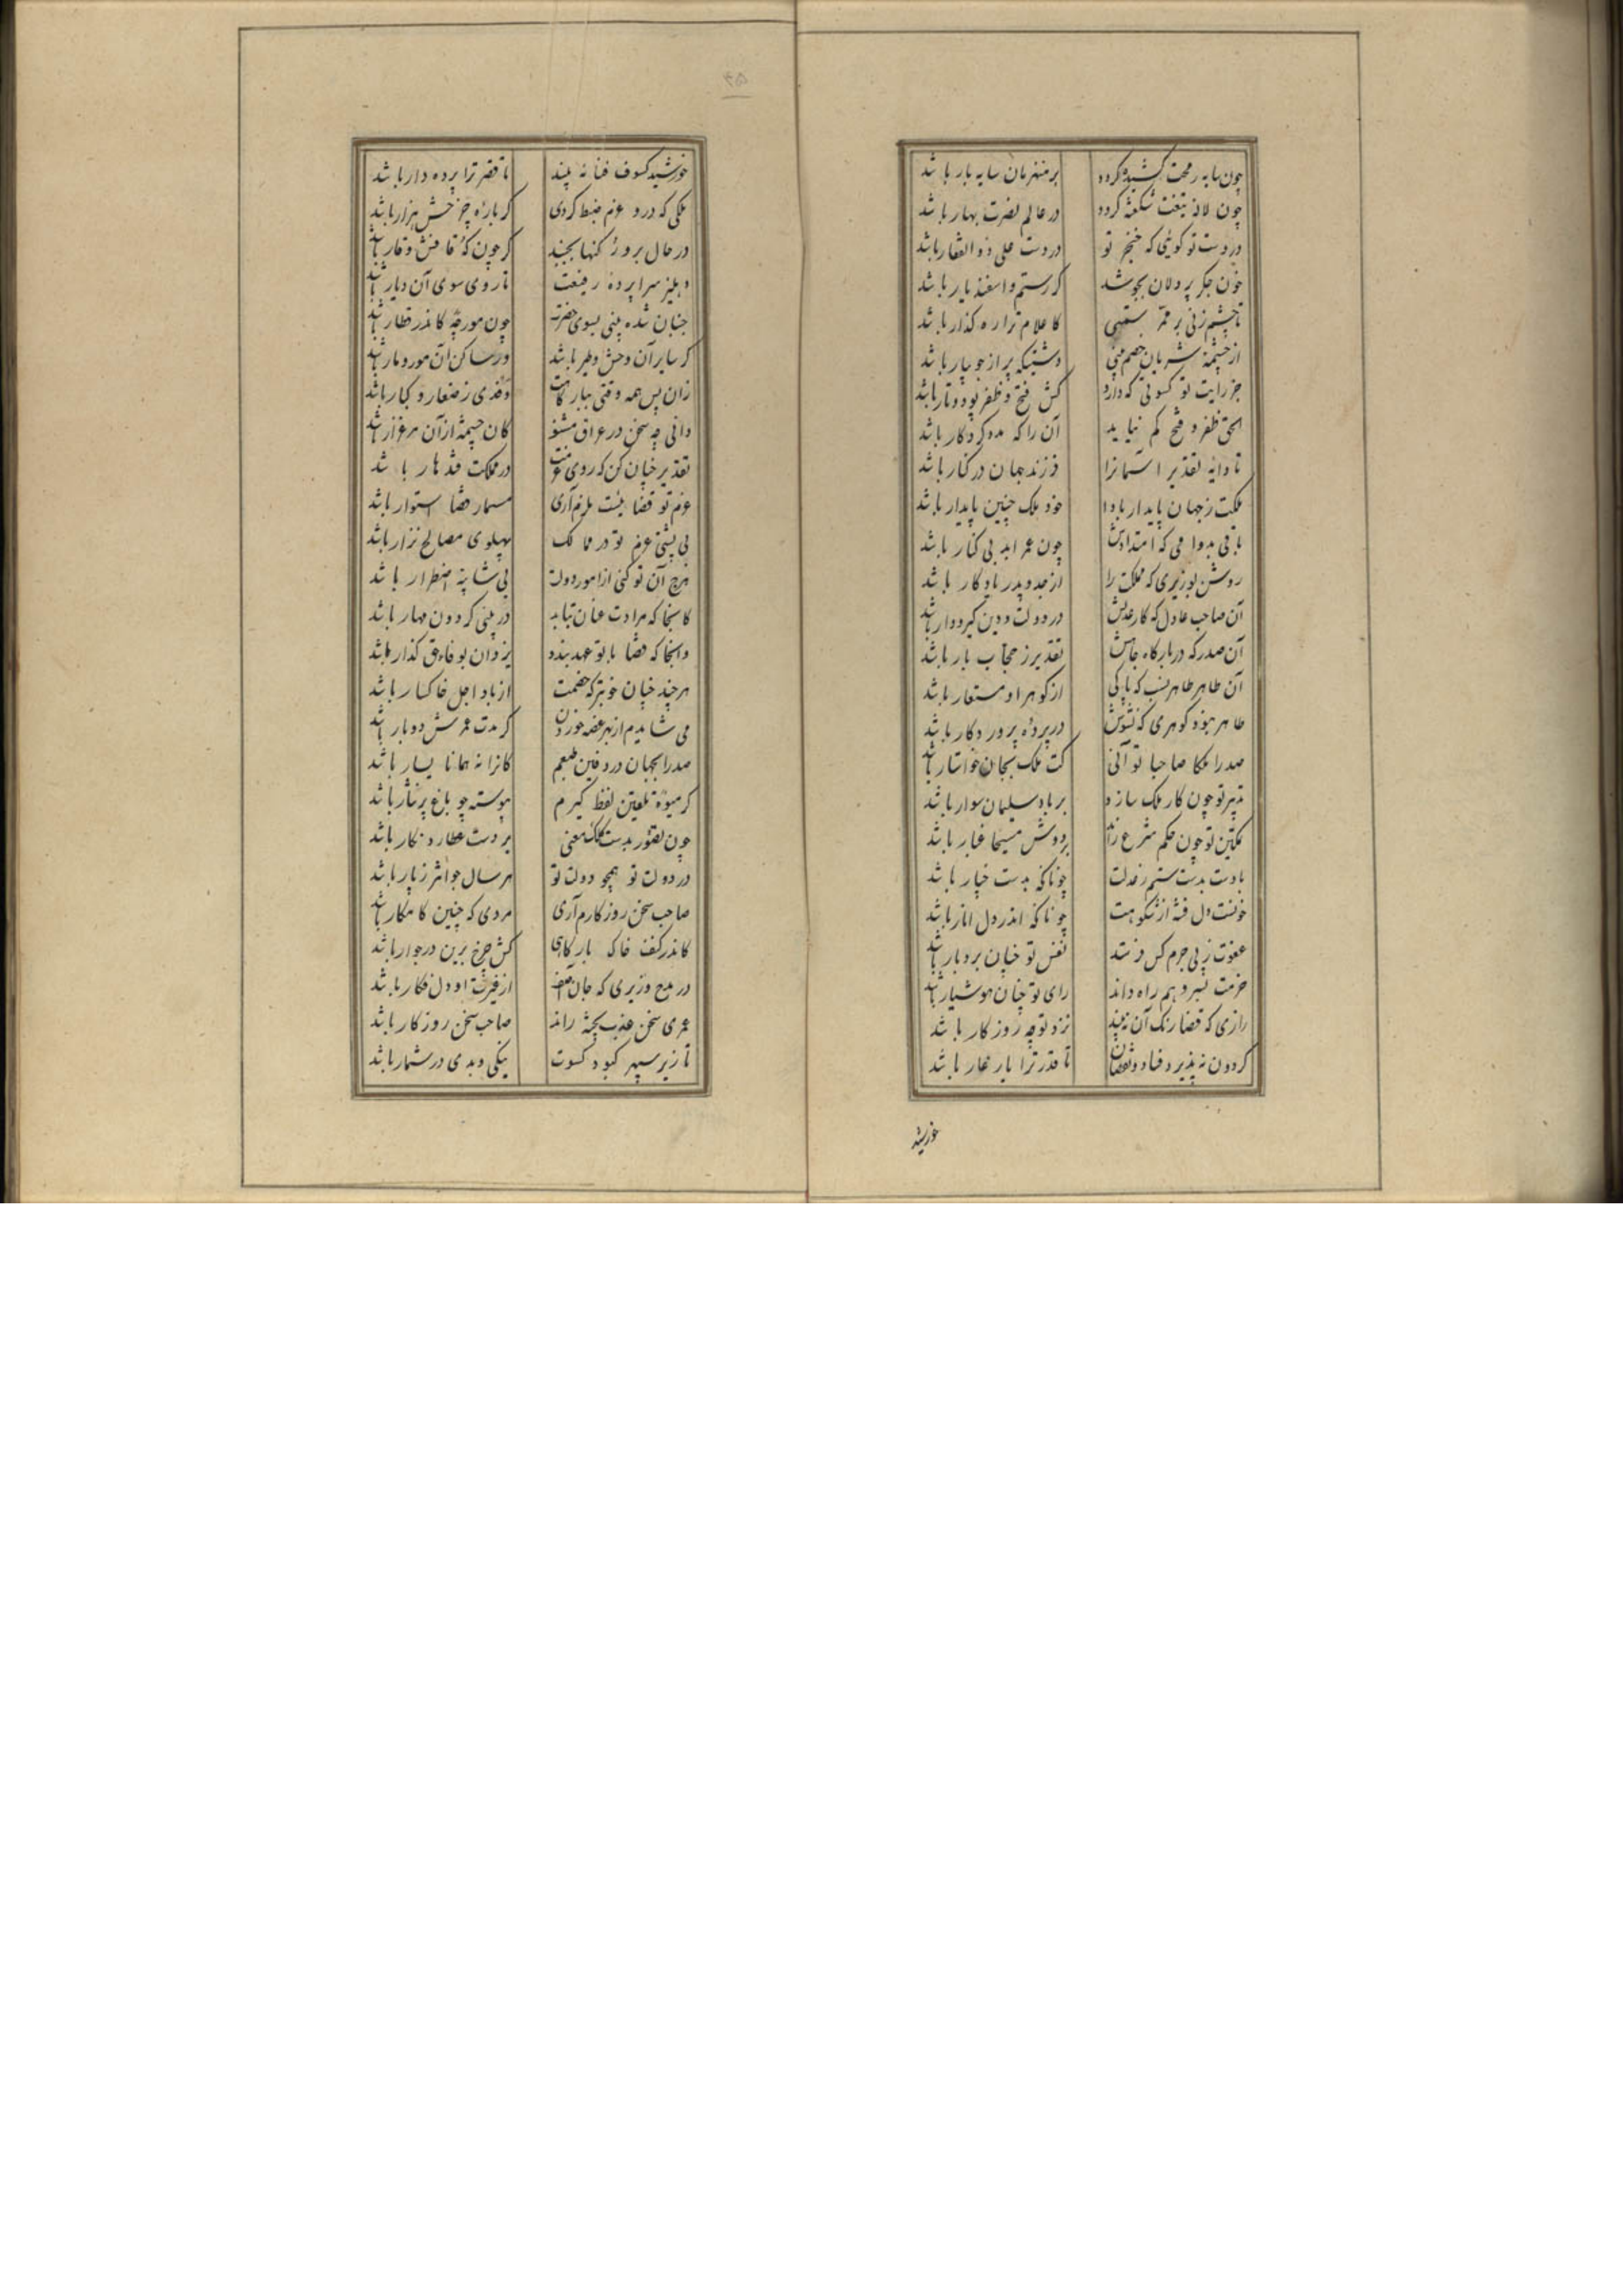 چون سایه رمحت کشیده کردد بر منهزمان سایه بار باشد
چون لاله تیغت شکفته کردد در عالم نصرت بهار باشد
در دست تو کوئی که خنجر تو در دست علی ذو الفقار باشد
خون جکر پردلان بجوشد کر رستم و اسفندیار باشد
تا چشم زنی بر ممر کاعلام ترا ره کذار باشد
از چشمهٔ شریان خصم بینی دشتیکه پر از جویبار باشد
جز رایت تو کسوتی که دارد کش فتح و ظفر پود و تار باشد
الحق ظفر و فتح کم نیاید آن را که مدد کردکار باشد
تا دایه تقدیر آسمانرا فرزند جهان در کنار باشد
ملکت ز جهان پایدار بادا خود ملک چنین پایدار باشد
باقی بدوامی که امتدادش چون عمر ابد بی کنار باشد
روشن بوزیری که مملکت را از جد و پدر یادکار باشد
آن صاحب عادل که کار عدلش در دولت و دین کیرودار باشد
آن صدر که در بارکاه جاهش تقدیر ز حجاب بار باشد
آن طاهر طاهر نسب که پاکی از کوهر او مستعار باشد
طاهر نبود کوهری که نشوش در پردهٔ پروردکار باشد
صدرا ملکا صاحبا تو آنی کت ملک بجان خواستار باشد
تدبیر تو چون کار ملک سازد بر باد سلیمان سوار باشد
تمکین تو چون حکم شرع راند بر دوش مسیحا غبار باشد
بادست بدست ستم ز عدلت چونانکه بدست خیار باشد
خونست دل فتنه از شکوهت چونانکه اندر دل انار باشد
عفوت ز پی جرم کس فرستد نفس تو چنان بردبار باشد
حزمت بسر وهم راه داند رای تو چنان هوشیار باشد
رازی که قضا رنک آن نبیند نزد تو چو روز کار باشد
کردون نپذیرد فساد و نقصان تا قدر ترا یار غار باشد
خورشید
۴۵
خورشید کسوف فنا نه بیند تا قصر ترا پرده دار باشد
ملکی که درو عزم ضبط کردی کر بارهٔ چرخش هزار باشد
در حال بروز کنها بجنبد کر چون که قافش وقار باشد
دهلیز سراپردهٔ رفیعت تا روی سوی آن دیار باشد
جنبان شده بینی بسوی حضرت چون مورچه کاندر قطار باشد
کر سایر آن وحش و طیر باشد ور ساکن آن مور و مار باشد
زان پس همه وقتی ببارکاهت وفدی ز صغار و کبار باشد
دانی چه سخن در عراق مشنو کان چشمه از آن مرغزار باشد
تقدیر چنان کن که روی عزمت در مملکت قندهار باشد
عزم تو قضا ئیست مبرم آری مسمار قضا استوار باشد
بی پشتی عزم تو در ممالک پهلوی مصالح نزار باشد
هرچ آن تو کنی از امور دولت بی شایبهٔ اضطرار باشد
کانجا که مرادت عنان بتابد در بینی کردون مهار باشد
وانجا که قضا با تو عهد بندد یزدان بوفا حق کذار باشد
هرچند چنان خوبتر که خصمت از باد اجل خاکسار باشد
می شایدم از بهر غصه خوردن کر مدت عمرش دو بار باشد
صدرا بجهان در دفین طبعم کانرا نه همانا یسار باشد
کر میوهٔ تلقین لفظ کیرم پیوسته چو باغ پرنثار باشد
چون تصور بدست کلک معنی بر دست عطارد نکار باشد
در دولت تو همچو دولت تو هر سال جوانتر ز پار باشد
صاحب سخن روز کارم آری مردی که چنین کامکار باشد
کاندر کنف خاک بارکاهی کش چرخ برین در جوار باشد
در مدح وزیری که جان آصف از غیرت او دل فکار باشد
عمری سخن عذب پخته راند صاحب سخن روزکار باشد
تا زیر سپهر کبود کسوت نیکی و بدی در شمار باشد